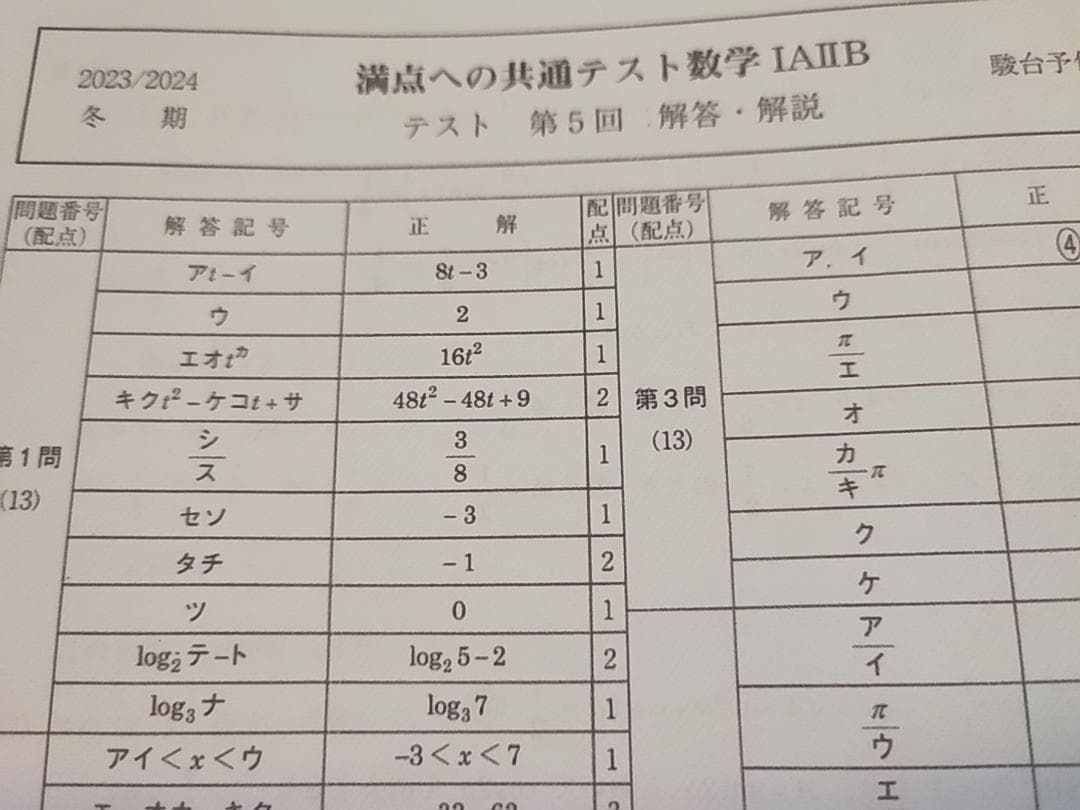 2023/2024
冬 期
満点への共通テスト数学 IAⅡB
テスト 第5回 解答・解説
駿台予
問題番号 (配点) 解答記号 正 解 配点 問題番号 (配点) 解答記号 正
第1問 (13)
アt−イ 8t−3 1
ウ 2 1
エオt^カ 16t² 1
キクt²−ケコt+サ 48t²−48t+9 2
シ/ス 3/8 1
セソ −3 1
タチ −1 2
ツ 0 1
log₂テ−ト log₂5−2 2
log₃ナ log₃7 1
アイ<x<ウ −3<x<7 1
第3問 (13)
ア, イ ④
ウ
π/エ
オ
カ/キ π
ク
ケ
ア/イ
π/ウ
エ